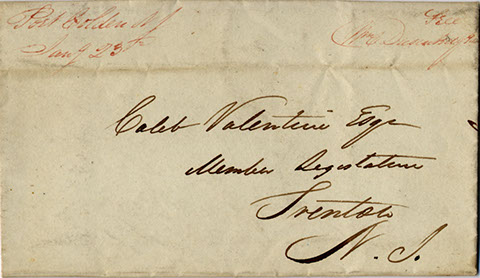 Port Colden NJ
Jany 23th
Free
Caleb Valentine Esqr
Member Legislature
Trenton
N. J.